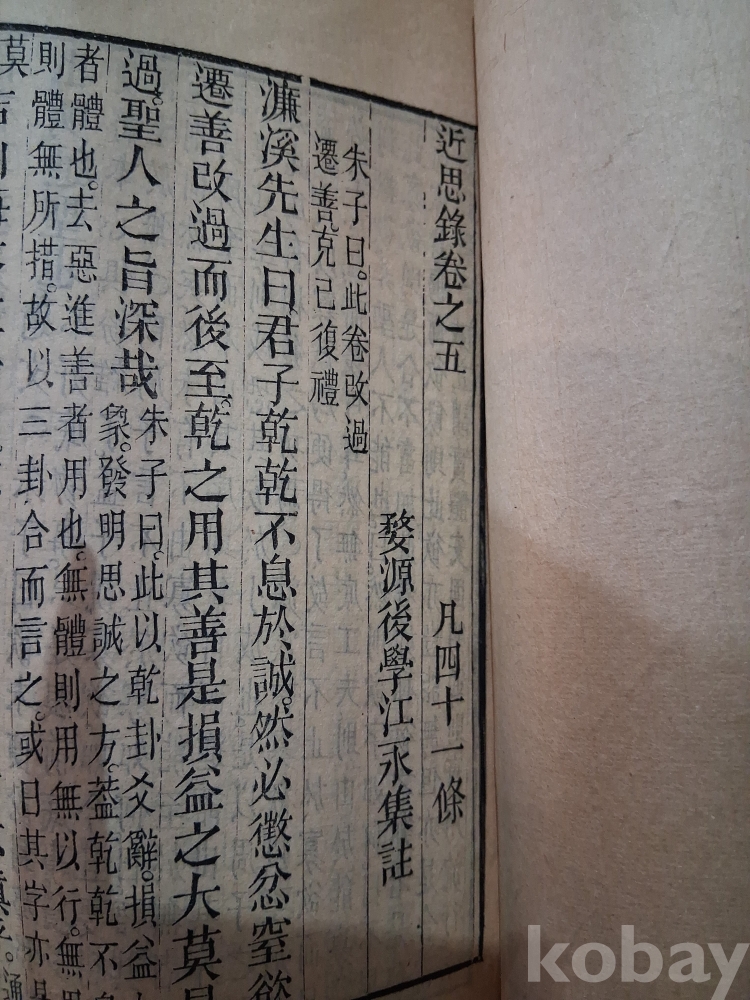 近思錄卷之五 凡四十一條
婺源後學江永集註
朱子曰。此卷改過
遷善克己復禮
濂溪先生曰君子乾乾不息於誠。然必懲忿窒慾
遷善改過而後至。乾之用其善是損益之大莫是
過。聖人之旨深哉
朱子曰。此以乾卦爻辭。損益
象。發明思誠之方。葢乾乾不
者體也。去惡進善者用也。無體則用無以行。無用
則體無所措。故以三卦合而言之。或曰其字亦是
莫
kobay